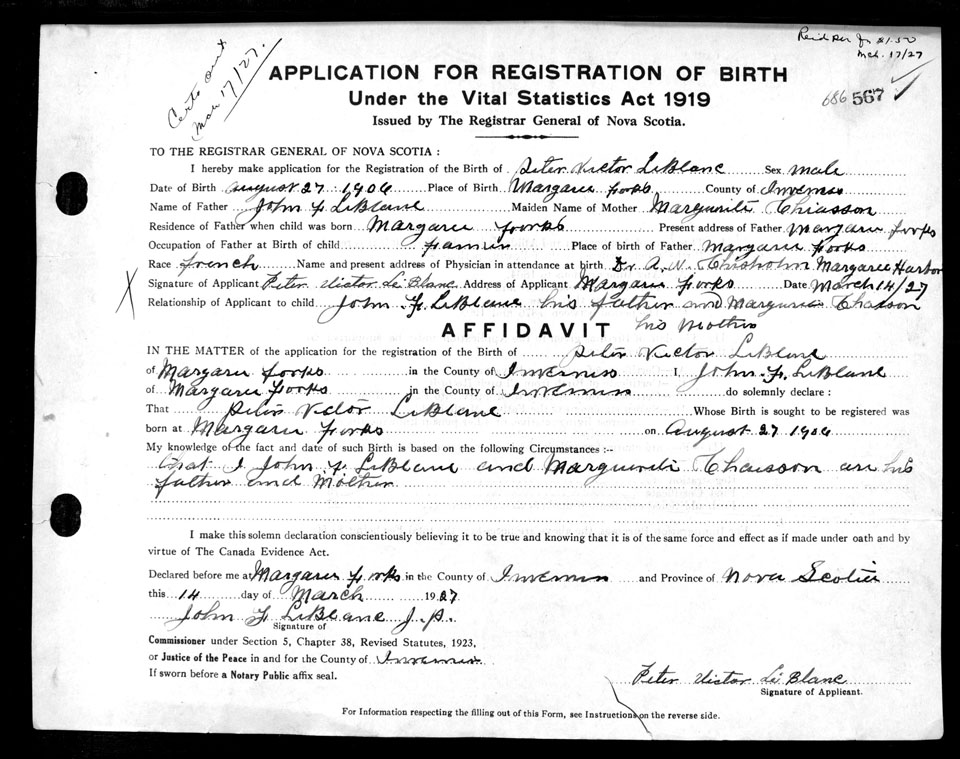 Certs out
Mar 17/27.
$1.50
Mch. 17/27
686 567
APPLICATION FOR REGISTRATION OF BIRTH
Under the Vital Statistics Act 1919
Issued by The Registrar General of Nova Scotia.
TO THE REGISTRAR GENERAL OF NOVA SCOTIA :
I hereby make application for the Registration of the Birth of Peter Victor LeBlanc Sex male
Date of Birth August 27 1906 Place of Birth Margaree Forks County of Inverness
Name of Father John F LeBlanc Maiden Name of Mother Marguerite Chiasson
Residence of Father when child was born Margaree Forks Present address of Father Margaree Forks
Occupation of Father at Birth of child Farmer Place of birth of Father Margaree Forks
Race French Name and present address of Physician in attendance at birth Dr A. N. Chisholm Margaree Harbor
X Signature of Applicant Peter Victor Le Blanc Address of Applicant Margaree Forks Date March 14/27
Relationship of Applicant to child John F. LeBlanc his father and Marguerite Chasson
his Mother
AFFIDAVIT
IN THE MATTER of the application for the registration of the Birth of Peter Victor LeBlanc
of Margaree Forks in the County of Inverness I, John F. LeBlanc
of Margaree Forks in the County of Inverness do solemnly declare :
That Peter Victor LeBlanc Whose Birth is sought to be registered was
born at Margaree Forks on August 27 1906
My knowledge of the fact and date of such Birth is based on the following Circumstances :--
that I John F LeBlanc and Marguerite Chaisson are his
father and Mother
I make this solemn declaration conscientiously believing it to be true and knowing that it is of the same force and effect as if made under oath and by
virtue of The Canada Evidence Act.
Declared before me at Margaree Forks in the County of Inverness and Province of Nova Scotia
this 14 day of March 1927
John F LeBlanc J.P.
Signature of
Commissioner under Section 5, Chapter 38, Revised Statutes, 1923,
or Justice of the Peace in and for the County of Inverness
If sworn before a Notary Public affix seal.
Peter Victor Le Blanc
Signature of Applicant.
For Information respecting the filling out of this Form, see Instructions on the reverse side.